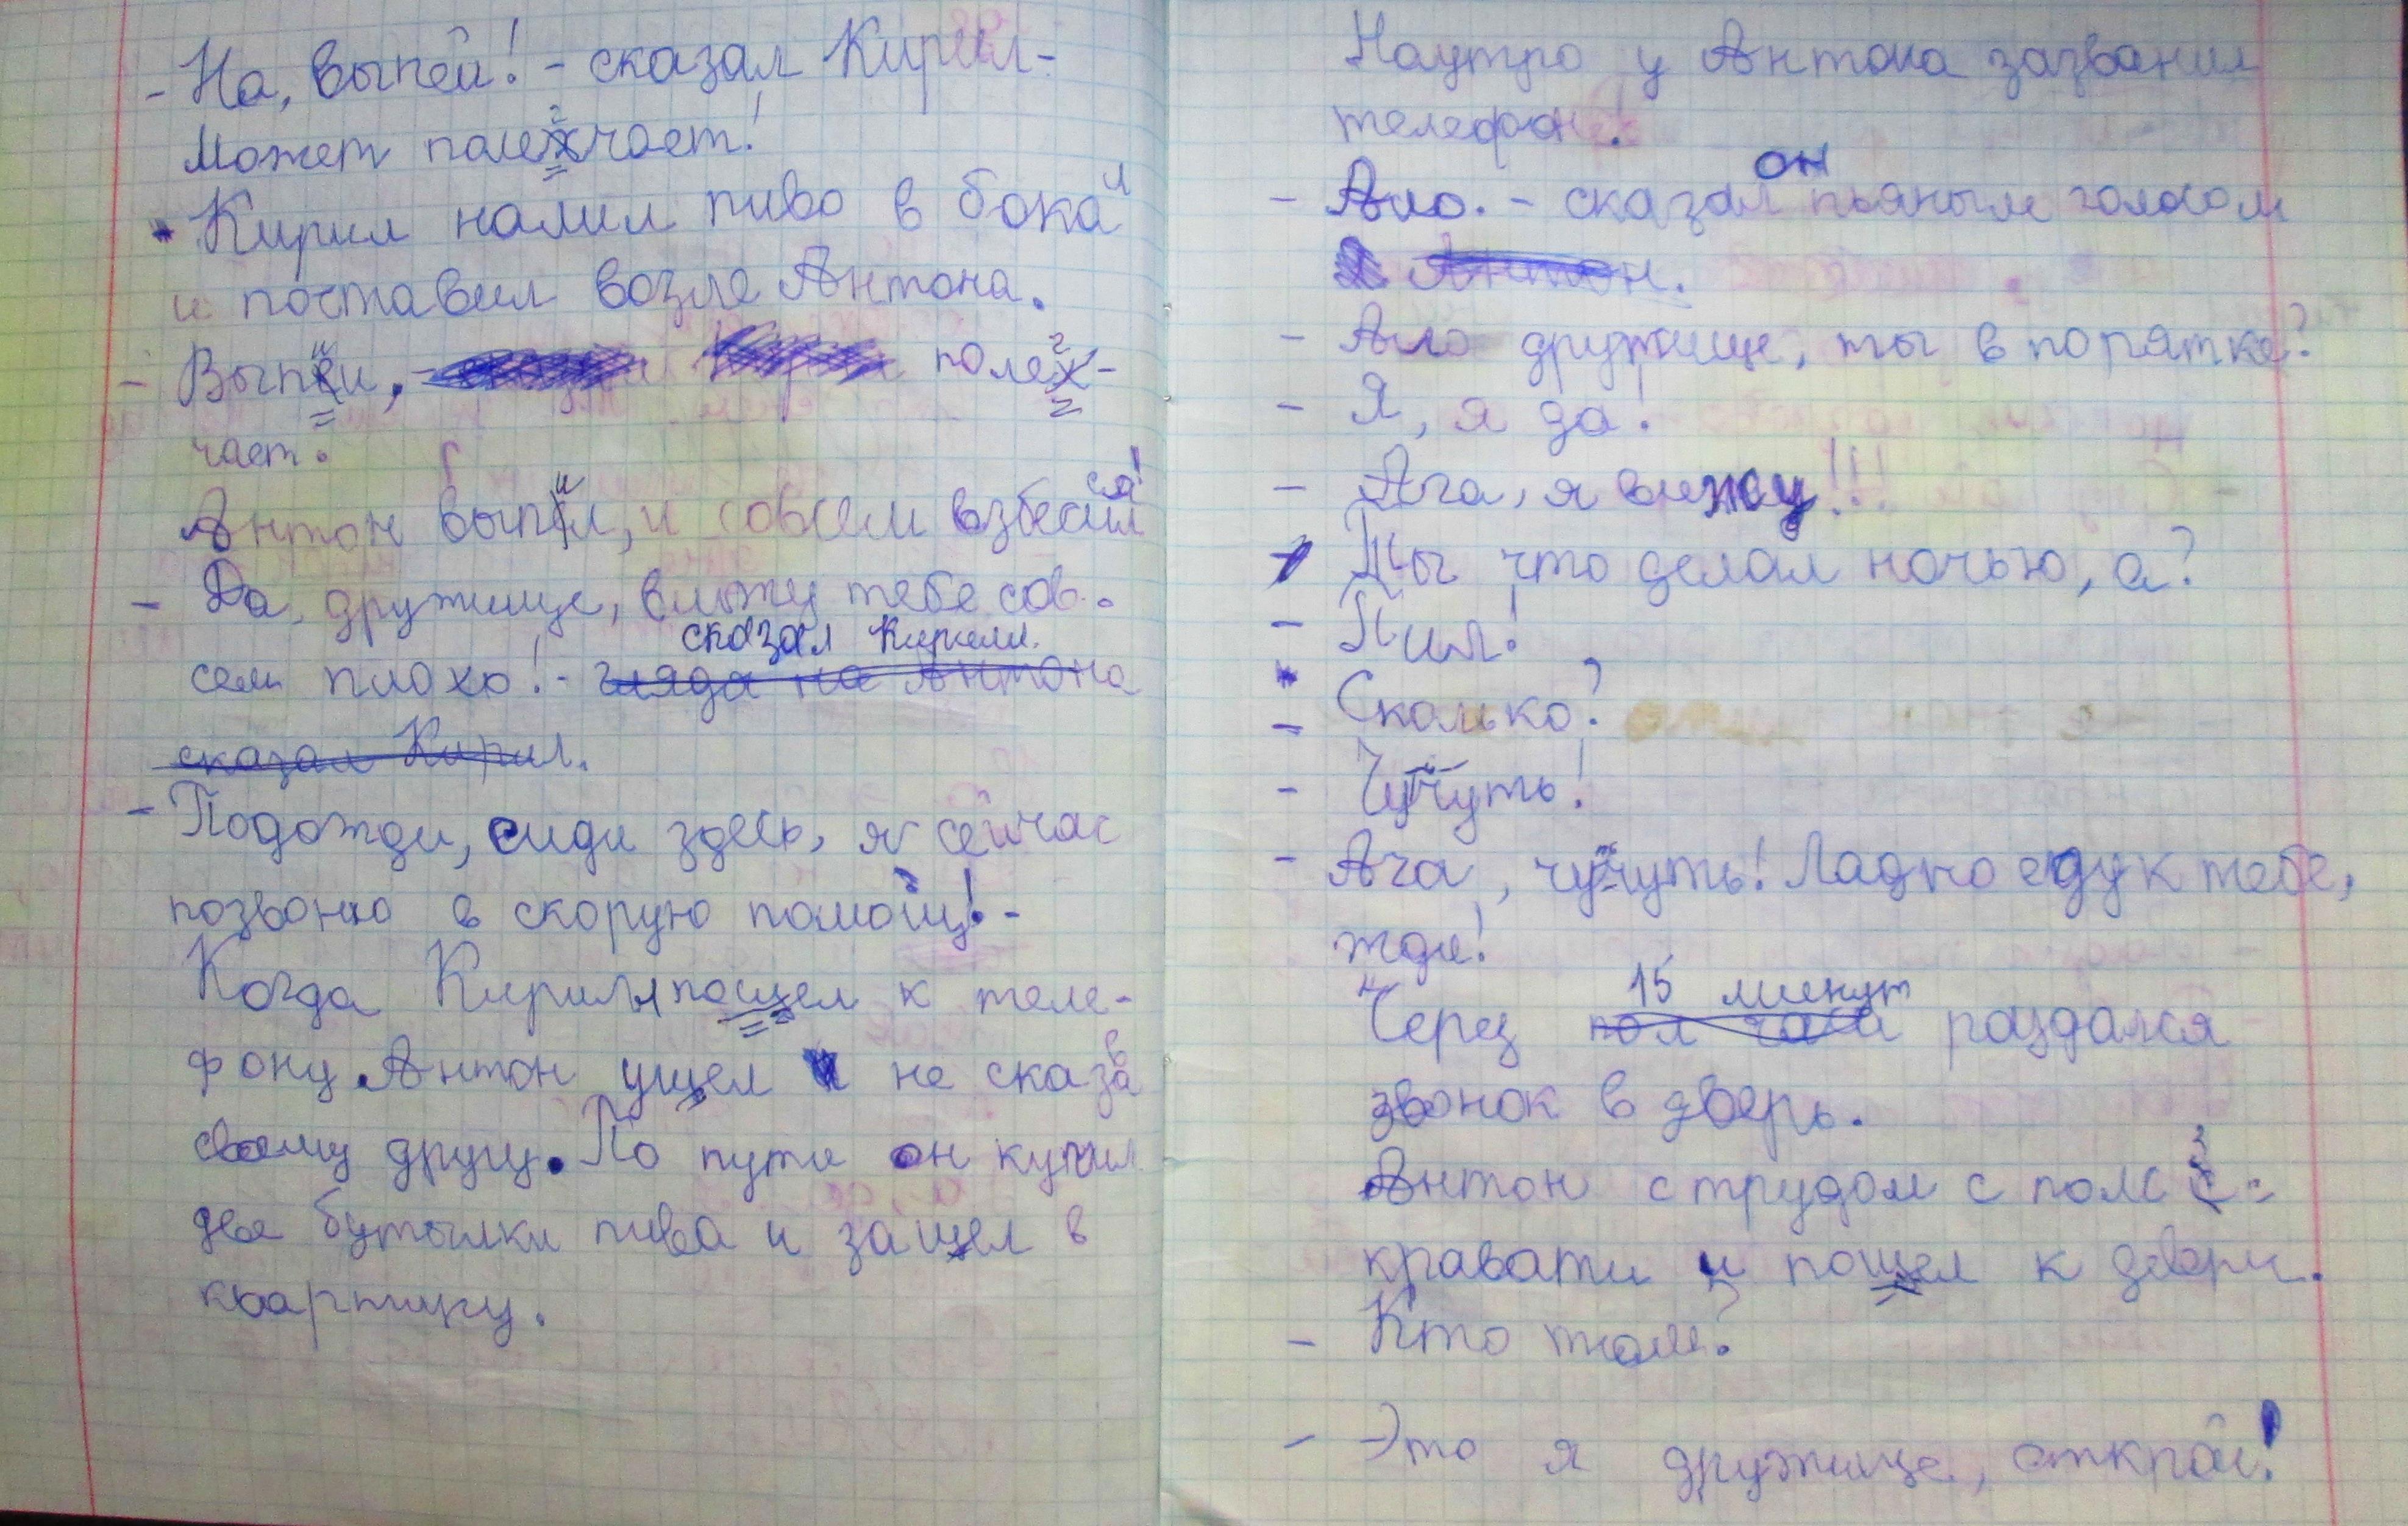 - На, выпей! - сказал Кирил -
Может полегчает!
Кирил налил пиво в бокал
и поставил возле Антона.
- Выпей, полег-
чает.
Антон выпил, и совсем взбесился!
- Да, дружище, вижу тебе сов-
сем плохо! - сказал Кирилл.
гляда на Антона
сказал Кирил.
- Подожди, сиди здесь, я сейчас
позвоню в скорую помощ! -
Когда Кирилл пошел к теле-
фону Антон ушел не сказав
своему другу. По пути он купил
две бутылки пива и зашел в
квартиру.
Наутро у Антона зазванил
телефон!
- Ало. - сказал он пьяным голосом
Антон.
- Ало дружище, ты в порятке?
- Я, я да!
- Ага, я вижу!!!
- Ты что делал ночью, а?
- Пил!
- Сколько?
- Чутчуть!
- Ага, чутчуть! Ладно еду к тебе,
жди!
Через 15 минут
пол часа раздался
звонок в дверь.
Антон с трудом с полз с
кравати и пошел к двери.
- Кто там?
- Это я дружище, открой!